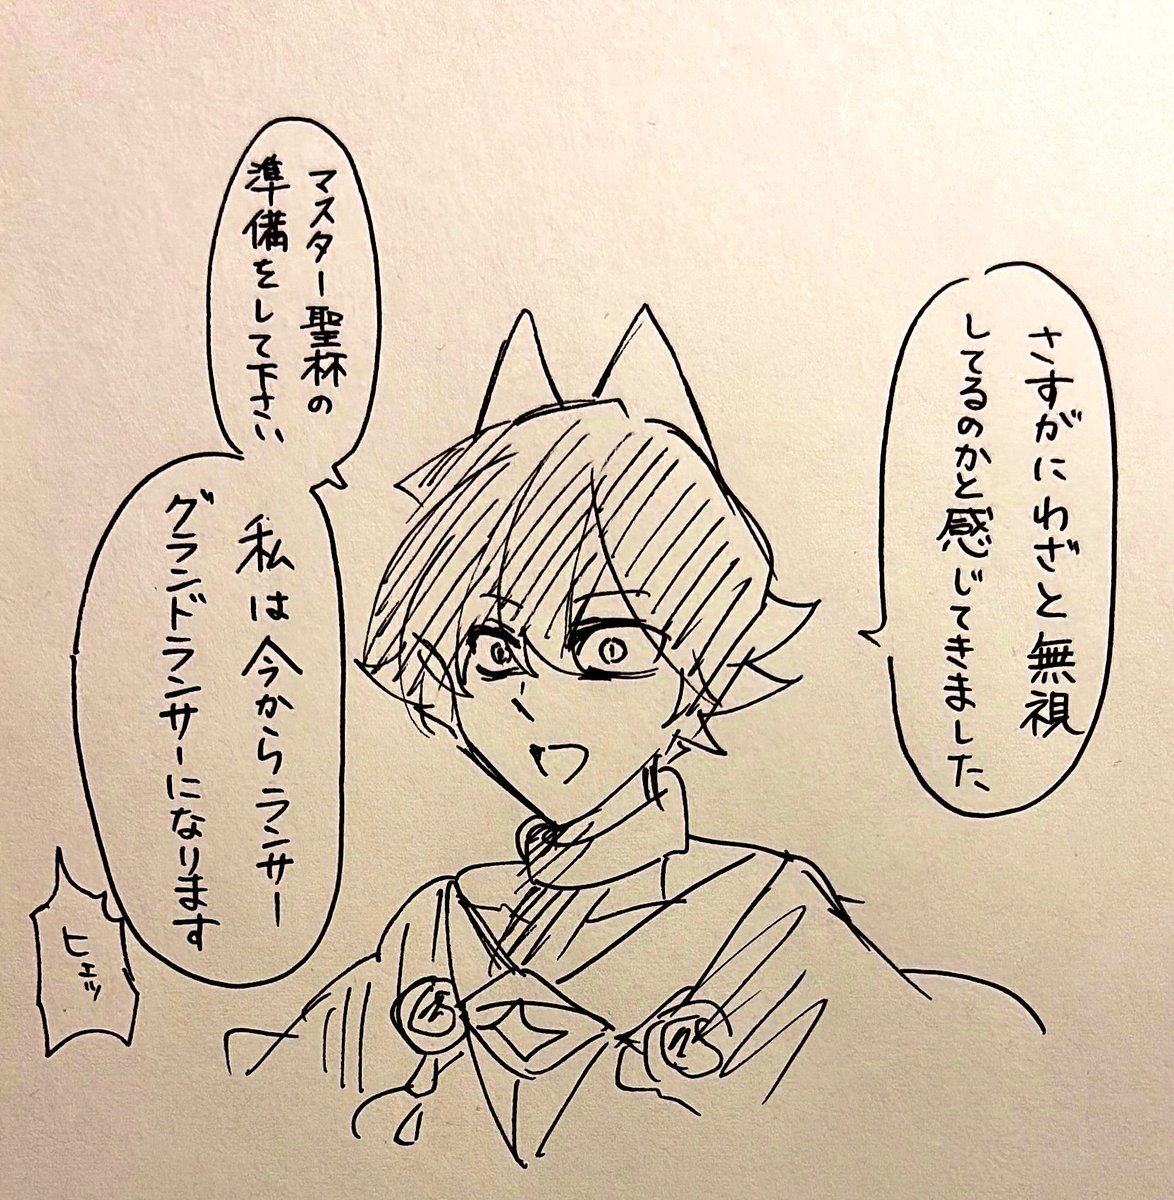 さすがにわざと無視
してるのかと感じてきました、
マスター聖杯の
準備をして下さい
私は今からランサー
グランドランサーになります
ヒェッ